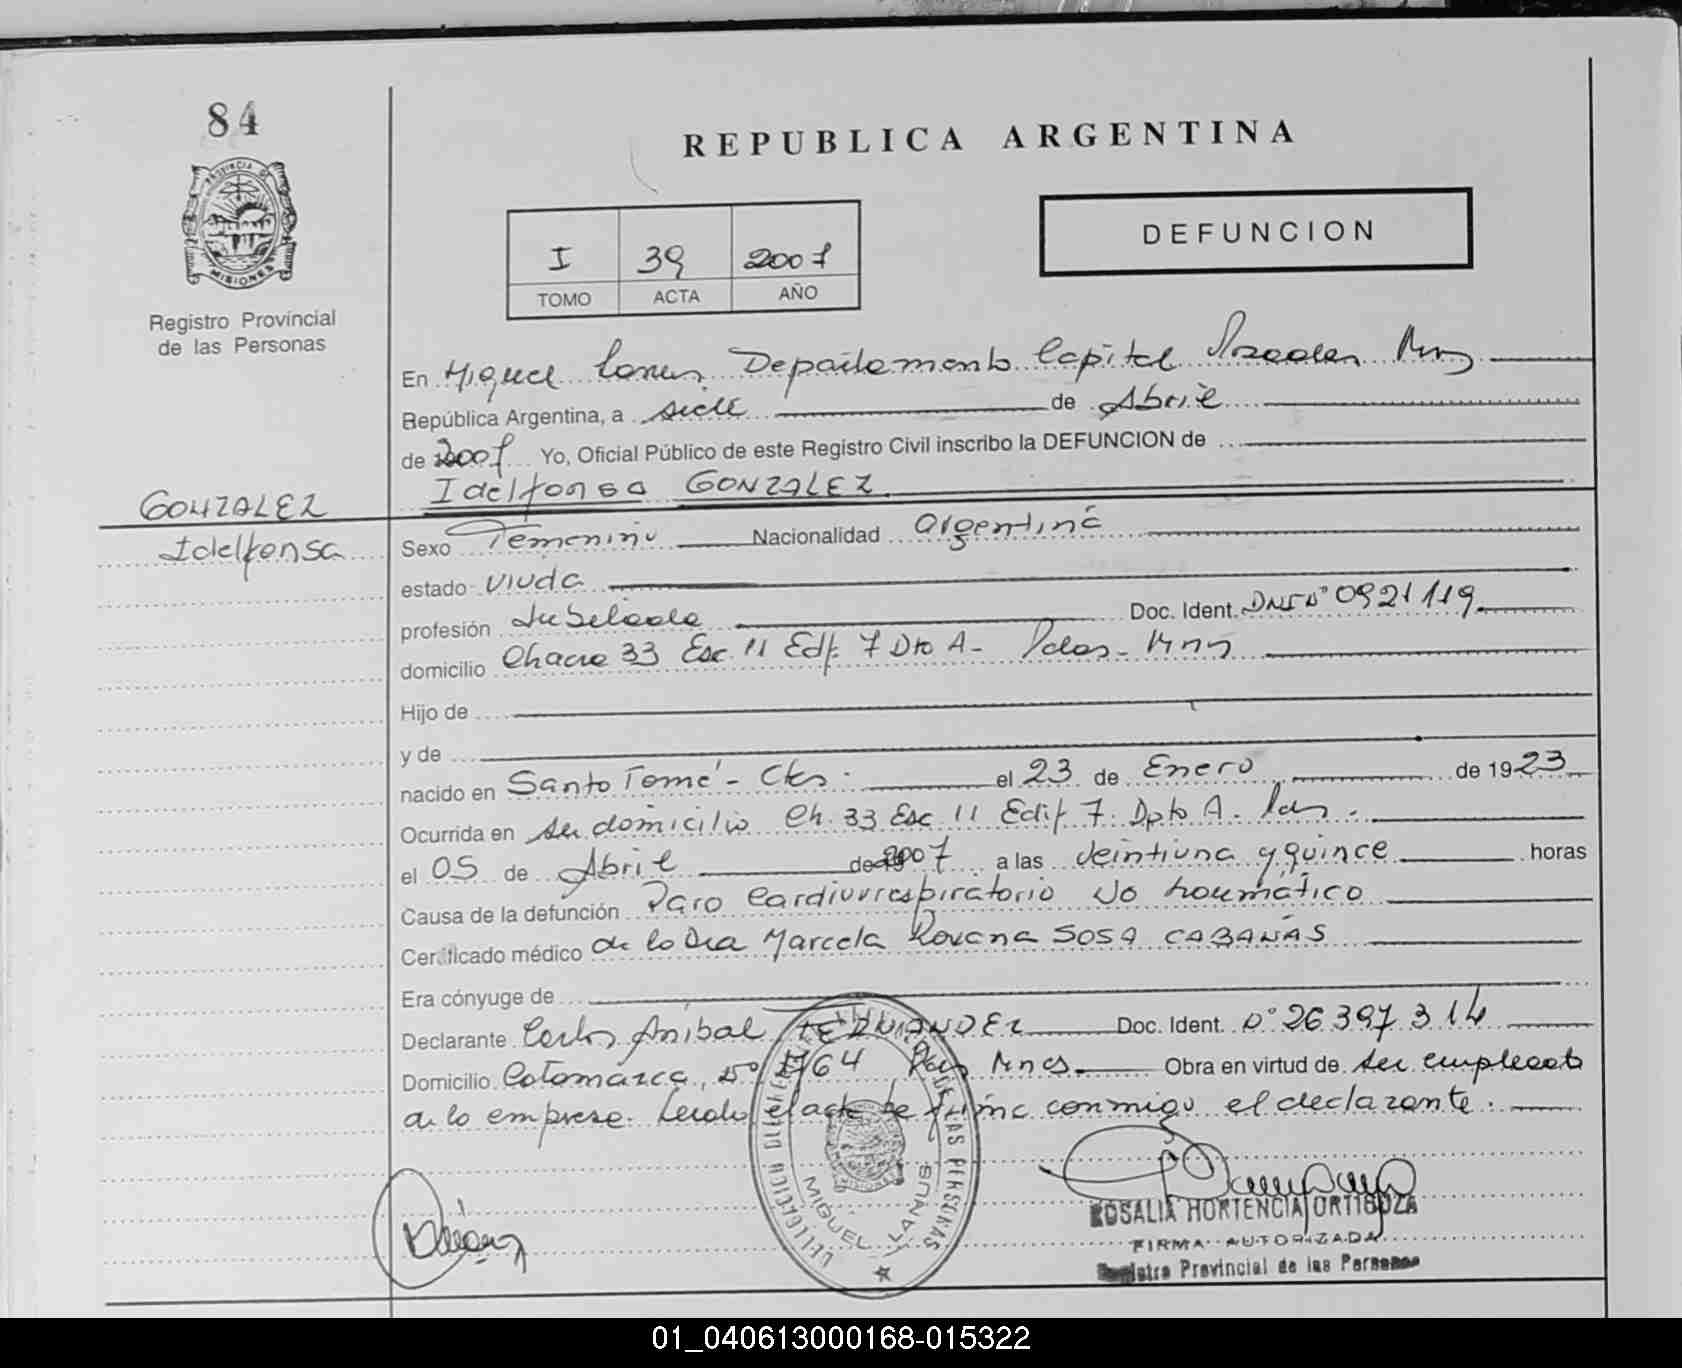 84
PROVINCIA DE
MISIONES
Registro Provincial
de las Personas
REPUBLICA ARGENTINA
I 39 2007
TOMO ACTA AÑO
DEFUNCION
En Miguel Lanus, Departamento Capital Posadas Mnes
República Argentina, a siete de Abril
de 2007 Yo, Oficial Público de este Registro Civil inscribo la DEFUNCION de
Idelfonsa GONZALEZ
GONZALEZ
Idelfonsa
Sexo Femenino Nacionalidad argentina
estado viuda
profesión Jubilada Doc. Ident. DNI N° 0921119
domicilio Chacra 33 Esc. 11 Edf. 7 Dto A- Pdas- Mnes
Hijo de
y de
nacido en Santo Tomé - Ctes. el 23 de Enero de 1923
Ocurrida en su domicilio Ch. 33 Esc 11 Edif 7. Dpto A. Pdas.
el 05 de Abril de 2007 a las veintiuna y quince horas
Causa de la defunción Paro Cardiorrespiratorio No traumático
Certificado médico de la Dra Marcela Roxana SOSA CABAÑAS
Era cónyuge de
Declarante Carlos Aníbal FERNANDEZ Doc. Ident. N° 26.397.314
Domicilio Catamarca, N° 1764 Pdas Mnes. Obra en virtud de ser empleado
de la empresa. Leído el acta la firma conmigo el declarante.
DE LAS PERSONAS
MIGUEL LANUS
ROSALIA HORTENCIA ORTIGOZA
FIRMA AUTORIZADA
Registro Provincial de las Personas
01_040613000168-015322